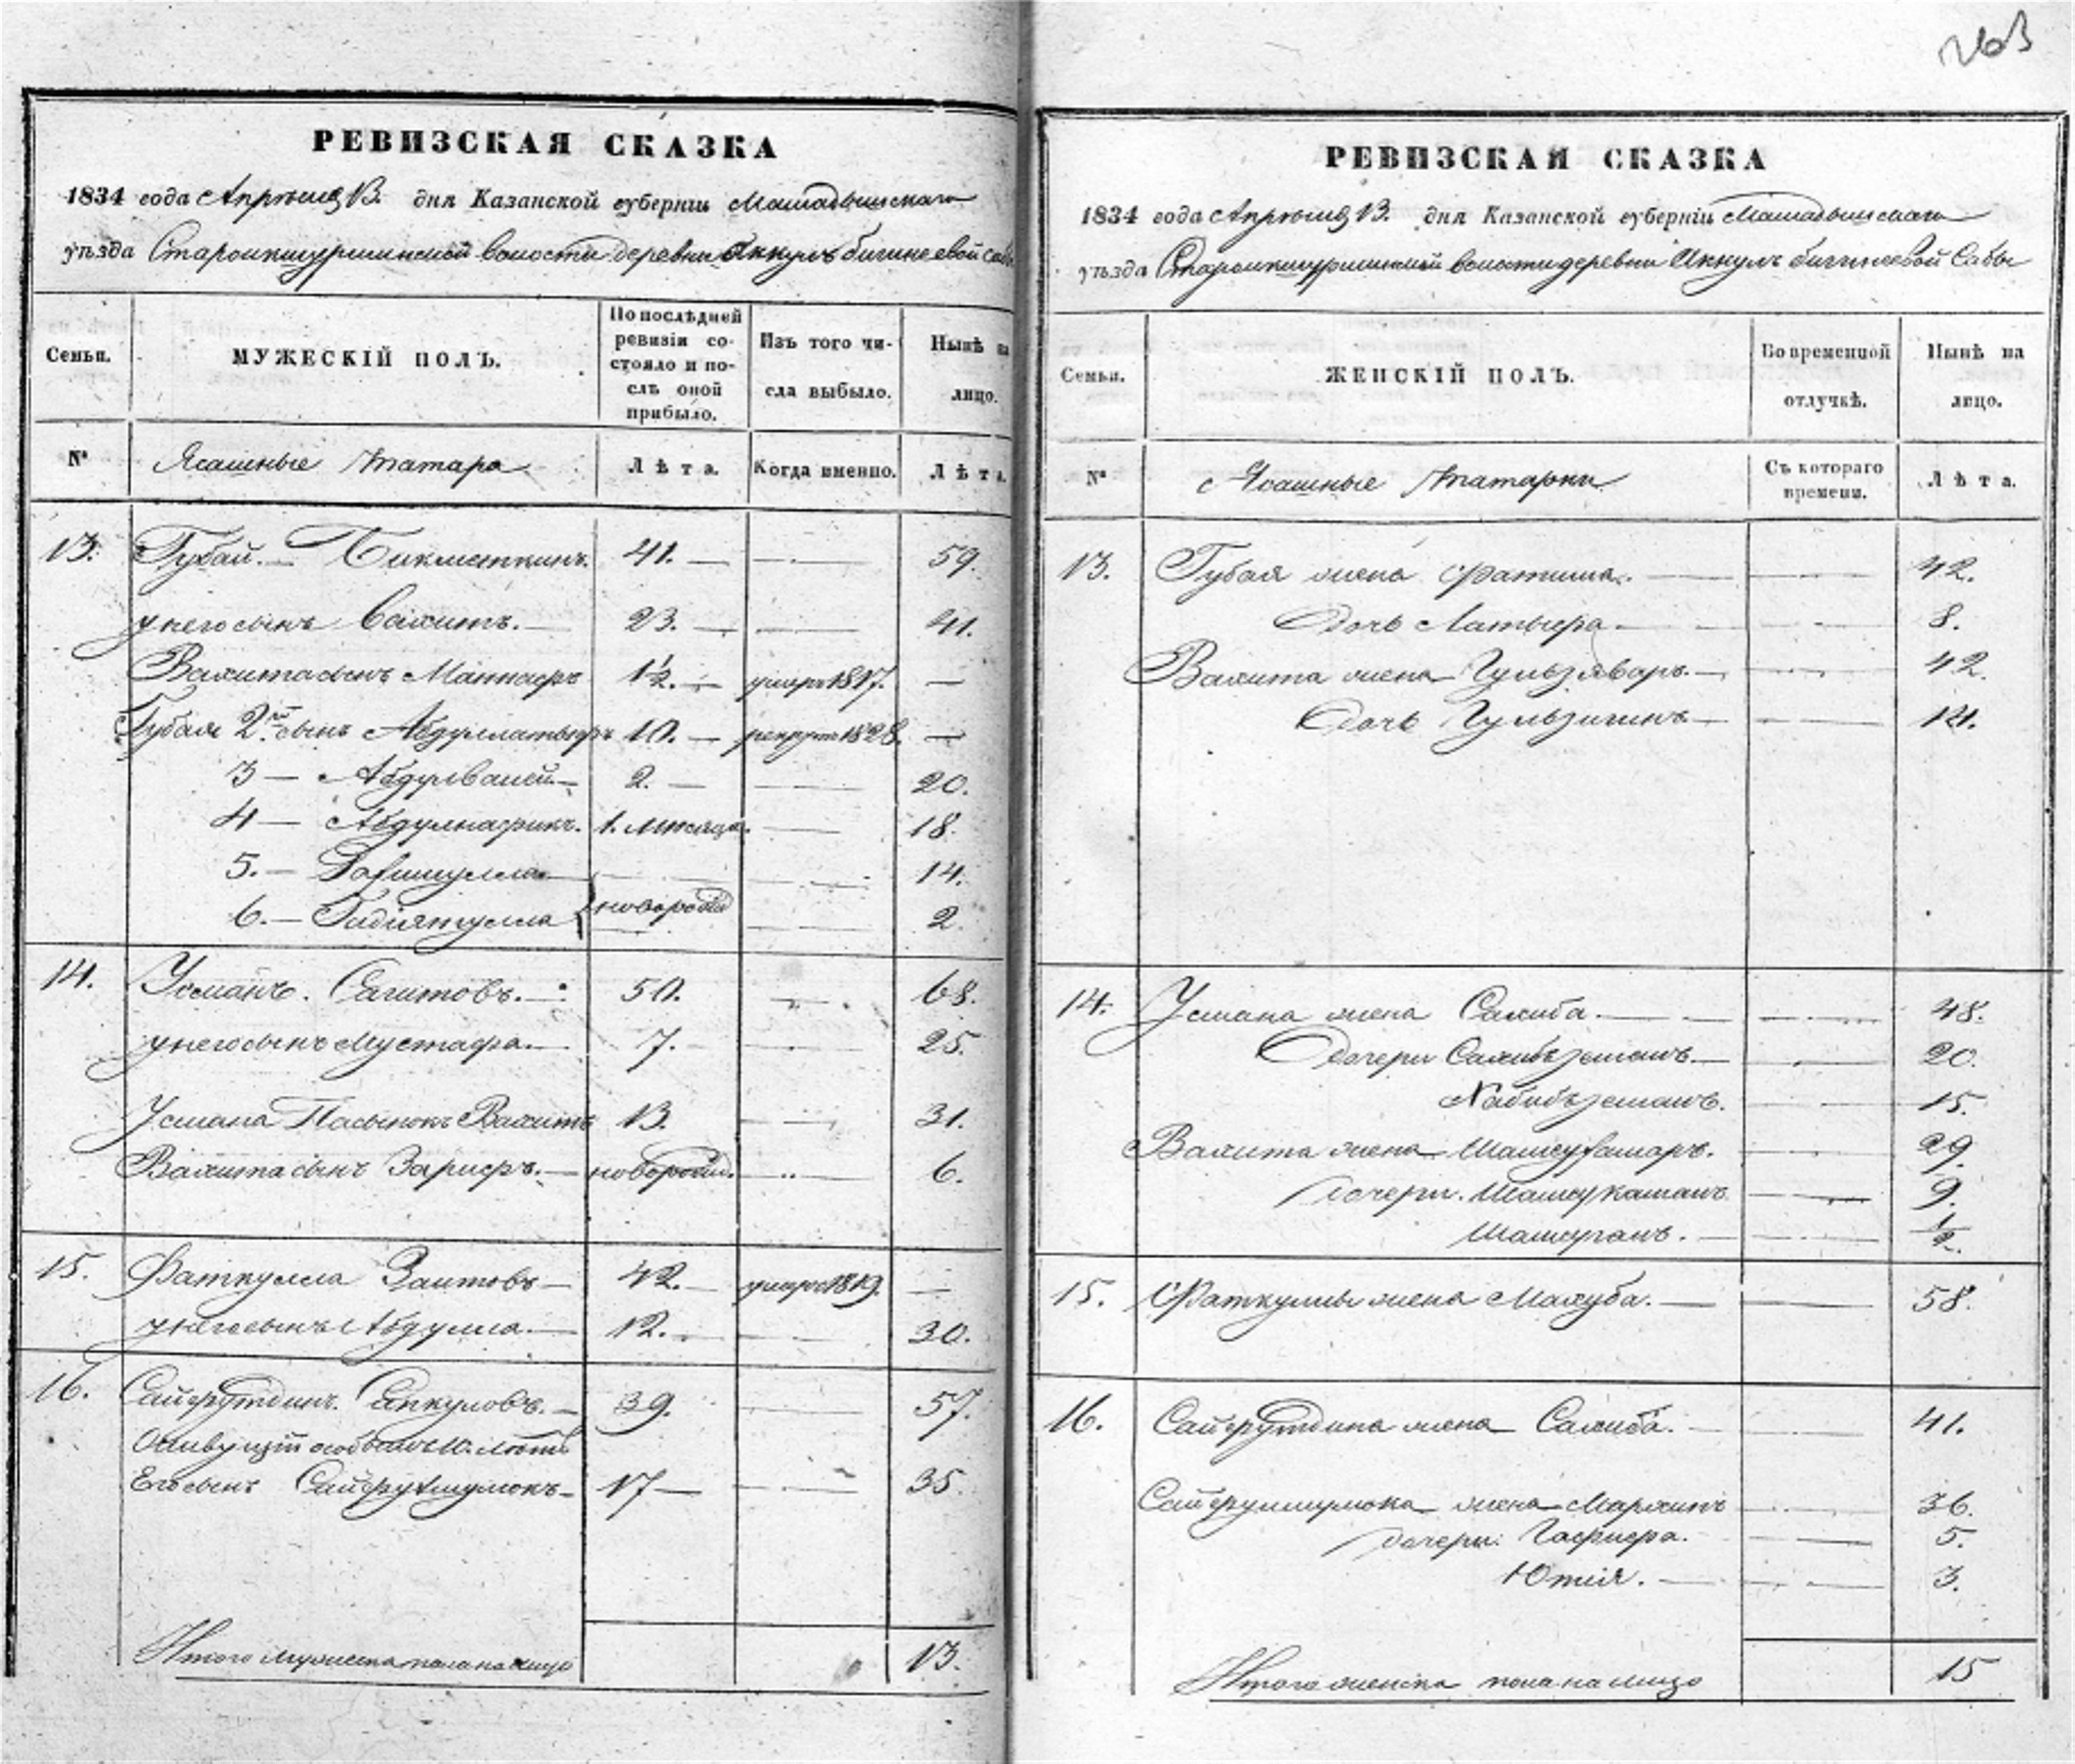 263
РЕВИЗСКАЯ СКАЗКА
1834 года Апрѣля 13. дня Казанской губерніи Мамадышскаго
уѣзда Староикшурминской волости деревни Иккулъ бигинеевой Сабы
Семьи.
МУЖЕСКІЙ ПОЛЪ.
По послѣдней ревизіи состояло и послѣ оной прибыло.
Изъ того числа выбыло.
Нынѣ на лицо.
№
Ясашные Татара
Лѣта.
Когда именно.
Лѣта.
13. Губай Бикметкинъ. 41. — — 59.
у него сынъ Вахитъ. — 23. — — 41.
Вахита сынъ Маннафъ 1½. — умеръ 1817. —
Губая 2й сынъ Абдуллатыфъ 10. — рекрут 1828. —
3 — Абдулвалей — 2. — — 20.
4 — Абдулнафикъ. 1. мѣсяца. — 18.
5. — — — 14.
6. — Гадіятулла новорожд — 2.
14. Усманъ. Сагитовъ. — 50. — 68.
у него сынъ Мустафа. — 7. — 25.
Усмана Пасынокъ Вахитъ 13. — 31.
Вахита сынъ Зарифъ. — новорожд. — 6.
15. Фаткулла Заитовъ — 42. — умеръ 1819. —
у него сынъ Абдулла. — 12. — 30.
16. Сайфутдинъ. Япкуловъ. — 39. — 57.
лѣтъ
Его сынъ — 17 — — 35.
Итого мужеска пола на лицо 13.
РЕВИЗСКАЯ СКАЗКА
1834 года Апрѣля 13. дня Казанской губерніи Мамадышскаго
уѣзда Староикшурминской волости деревни Иккулъ бигинеевой Сабы
Семьи.
ЖЕНСКІЙ ПОЛЪ.
Во временной отлучкѣ.
Нынѣ на лицо.
№
Ясашные Татарки
Съ котораго времени.
Лѣта.
13. Губая жена Фатима. — — 42.
дочь Латыфа — — 8.
Вахита жена Гульзяваръ. — — 42.
дочь — — 14.
14. Усмана жена Салиба. — — 48.
дочери Сахибъземалъ. — — 20.
Хабибъземалъ. — 15.
Вахита жена Шамсукамаръ. — 29.
дочери. — 9.
— — ½.
15. Фаткуллы жена Махуба. — — 58.
16. Сайфутдина жена Салиба. — — 41.
жена — 36.
дочери: — 5.
— — 3.
Итого женска пола на лицо 15